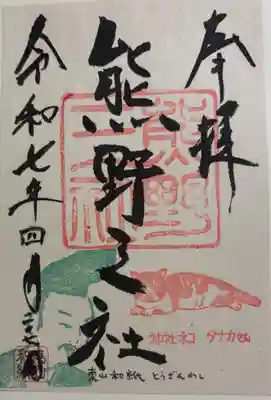 奉拝
熊野之社
令和七年四月二十七日
熊野三社
神社ネコ タナカさん
東山和紙 とうざんわし